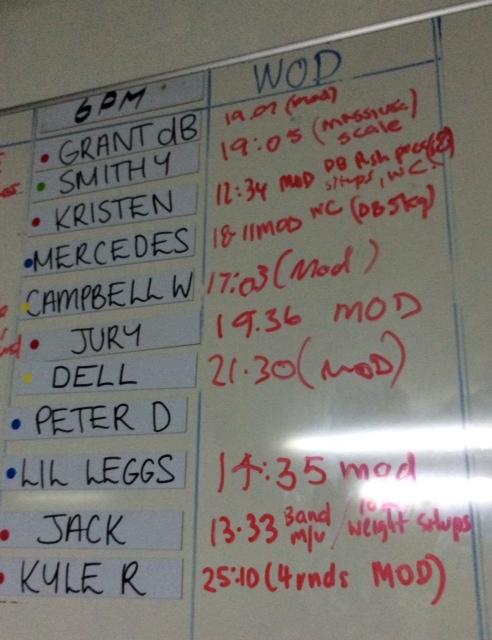 6PM WOD
GRANT dB 19.01 (mod)
SMITHY 19:05 (massive
scale
KRISTEN 12:34 MOD DB Push press(8)
situps, WC.
MERCEDES 18.11 MOD WC (DB5kg)
CAMPBELL W 17:03 (Mod)
JURY 19.36 MOD
DELL 21.30 (MOD)
PETER D
LIL LEGGS 14:35 mod
JACK 13.33 Band
m/u / weight situps
KYLE R 25:10 (4 rnds MOD)